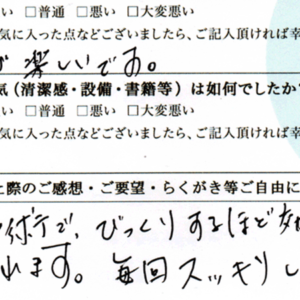 □普通 □悪い □大変悪い
気に入った点などございましたら、ご記入頂ければ幸
が楽しいです。
気（清潔感・設備・書籍等）は如何でしたか
い □普通 □悪い □大変悪い
気に入った点などございましたら、ご記入頂ければ幸
上際のご感想・ご要望・らくがき等ご自由に
術で、びっくりするほど効
れます。毎回スッキリし